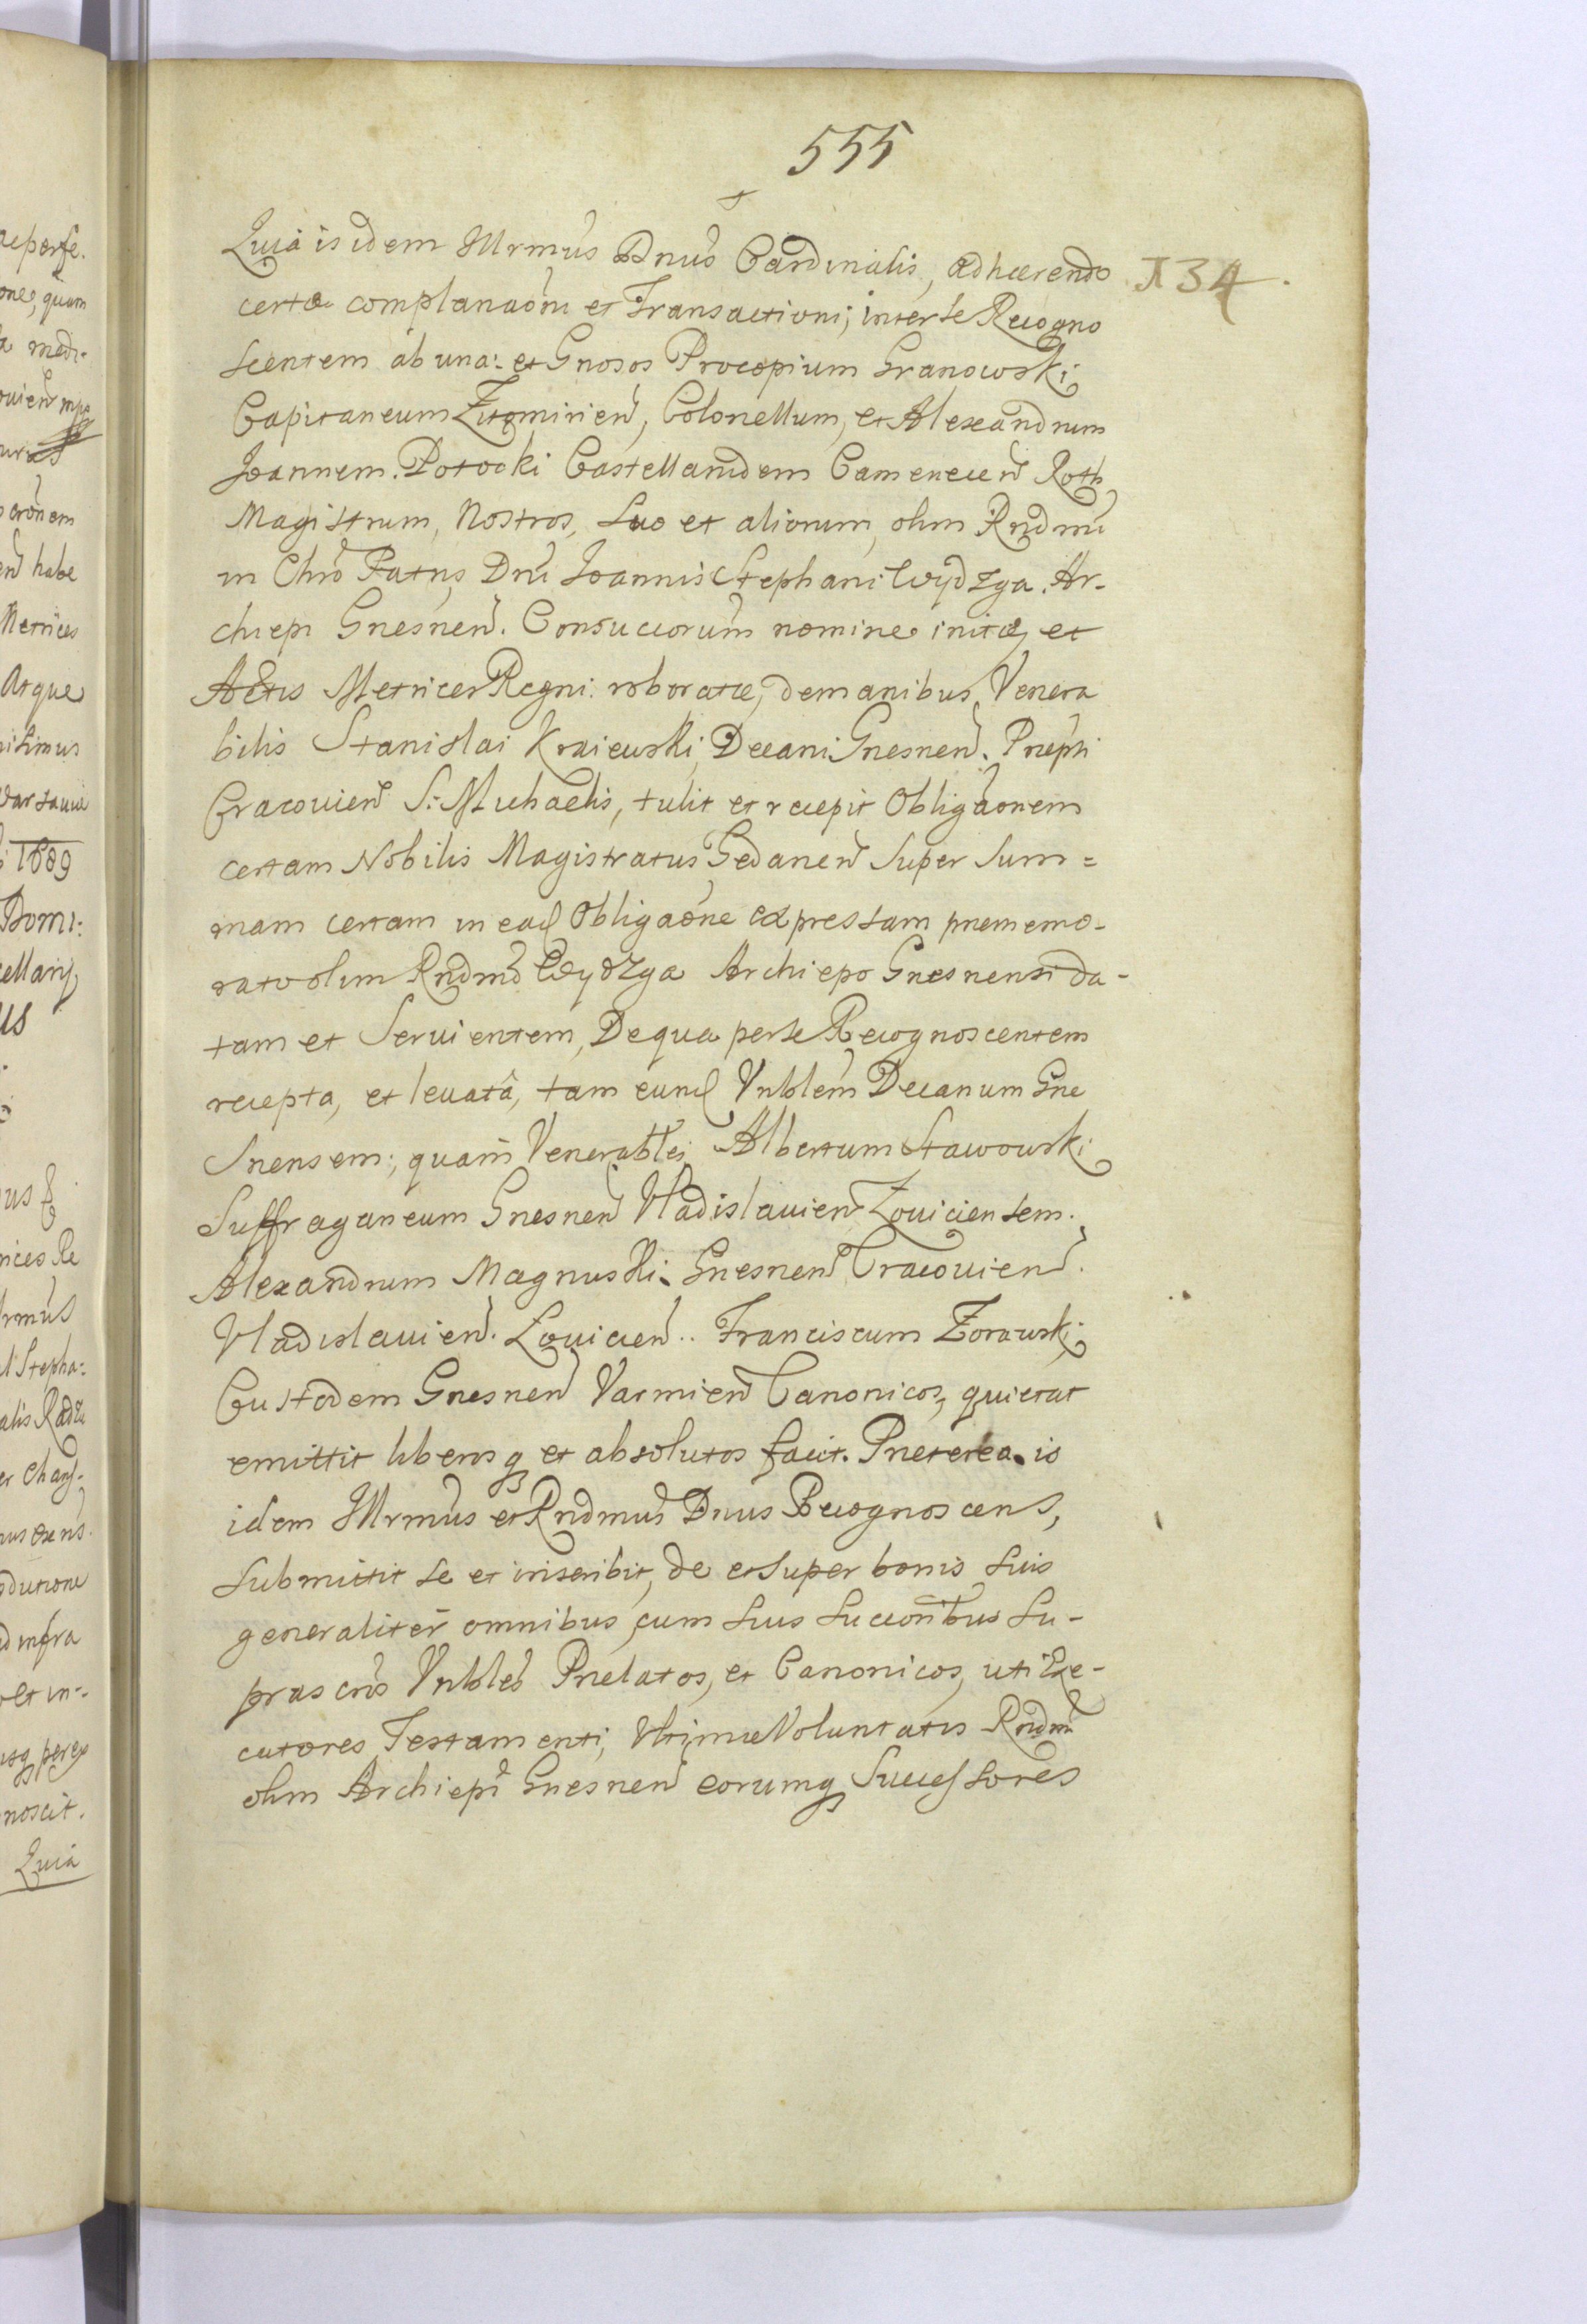 555
Quia is idem Illrmus Dnus Cardinalis, adhærendo
134
certæ complanaoni et Transactioni, inter se Recogno
scentem ab una: et Gnosos Procopium Granowski
Capitaneum Zitomirien, Colonellum, et Alexandrum
Joannem Potocki Castellanidem Camenecen Roth
Magistrum, Nostros, suo et aliorum, olim Rndmi
in Chro Patris Dni Joannis Stephani Wydzga. Ar-
chiepi Gnesnen. Consuccorum nomine initæ, et
Actis Metrices Regni roboratæ, de manibus Venera
bilis Stanislai Kraiewski, Decani Gnesnen. Præpti
Cracovien S. Michaelis, tulit et recepit Obligaonem
certam Nobilis Magistratus Gedanen super Sum=
mam certam in ead Obligaone expressam præmemo-
rato olim Rndmo Wydzga Archiepo Gnesnensi da-
tam et Servientem, De qua per se Recognoscentem
recepta, et levatâ, tam eund Vnblem Decanum Gne
snensem; quam Venerables Albertum Stawowski
Suffraganeum Gnesnen Vladislavien Lovicien sem.
Alexandrum Magnuski. Gnesnen Cracovien.
Vladislavien. Lovicien.. Franciscum Zorawski
Custodem Gnesnen Varmien Canonicos, quietat
emittit liberosq et absolutos facit. Præterea. is
idem Illrmus et Rndmus Dnus Recognoscens,
submittit se et inscribit, de et super bonis suis
generaliter omnibus, cum suis succoribus su-
prascris Vnbles Prælatos, et Canonicos, uti Exe-
cutores Testamenti, Vltimæ Voluntatis Rndmi
olim Archiepi Gnesnen eorumq Successores